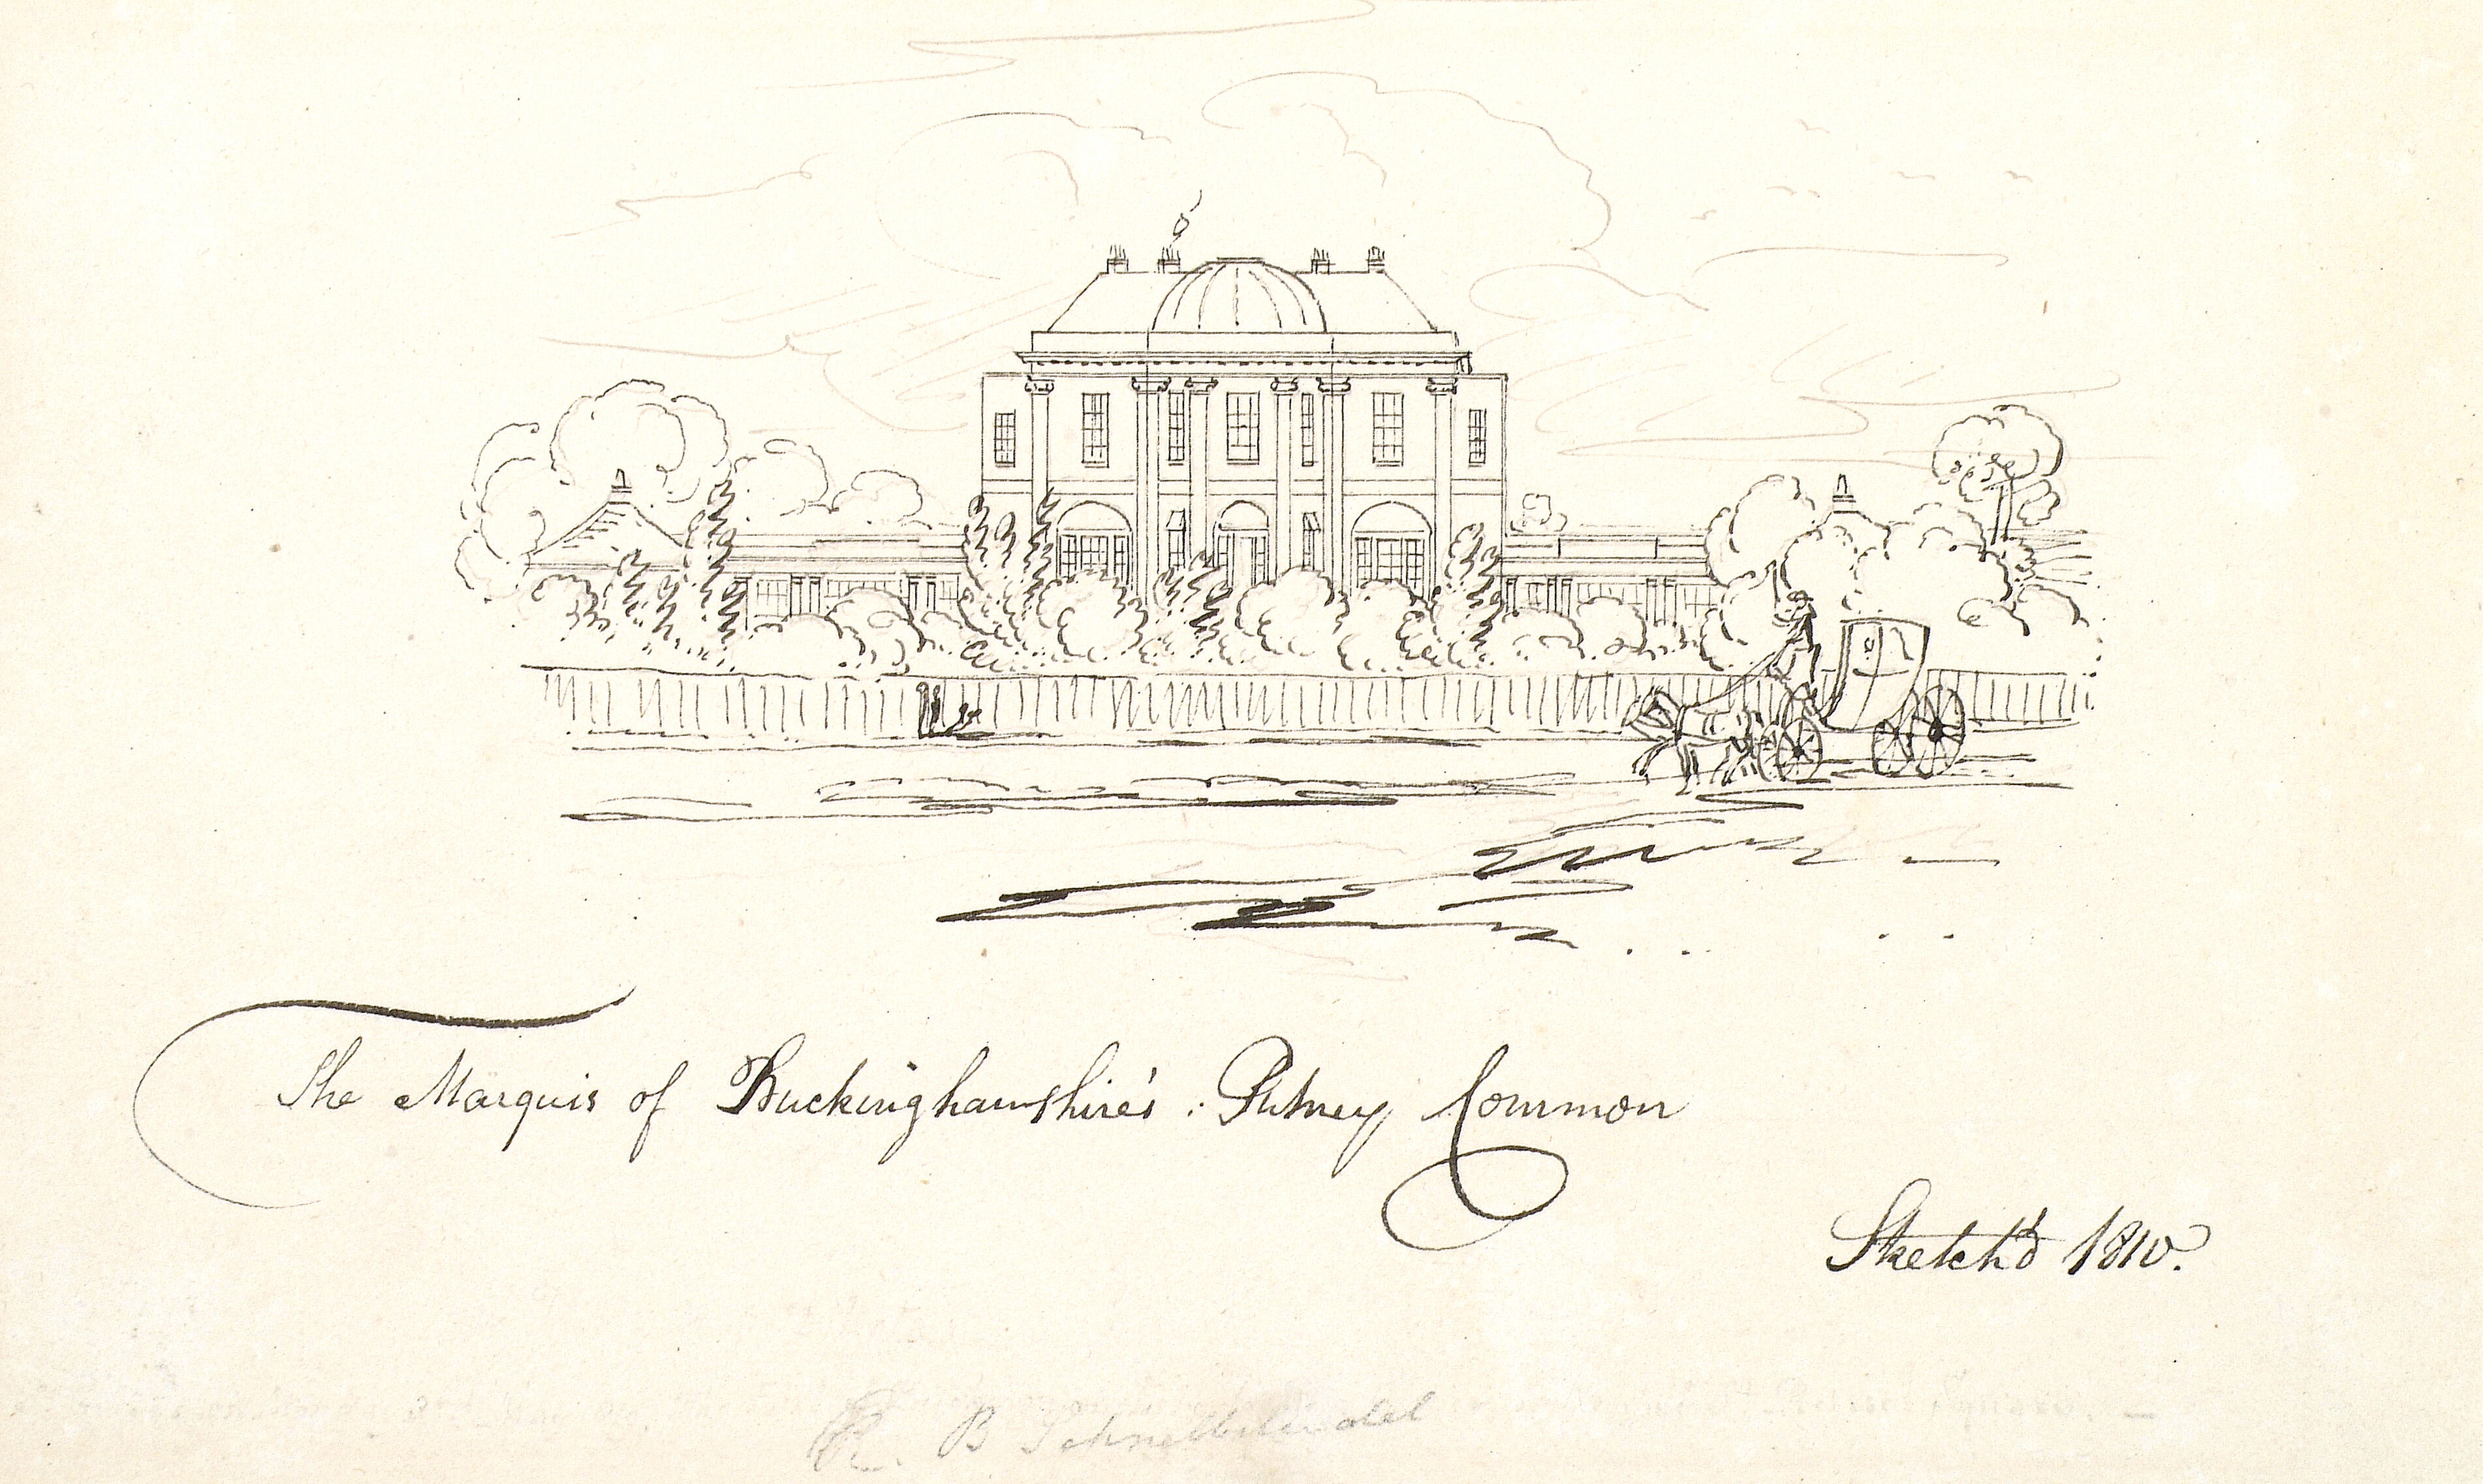 The Marquis of Buckinghamshire's : Putney Common
Sketch'd 1810.
R. B Schnebbelie del